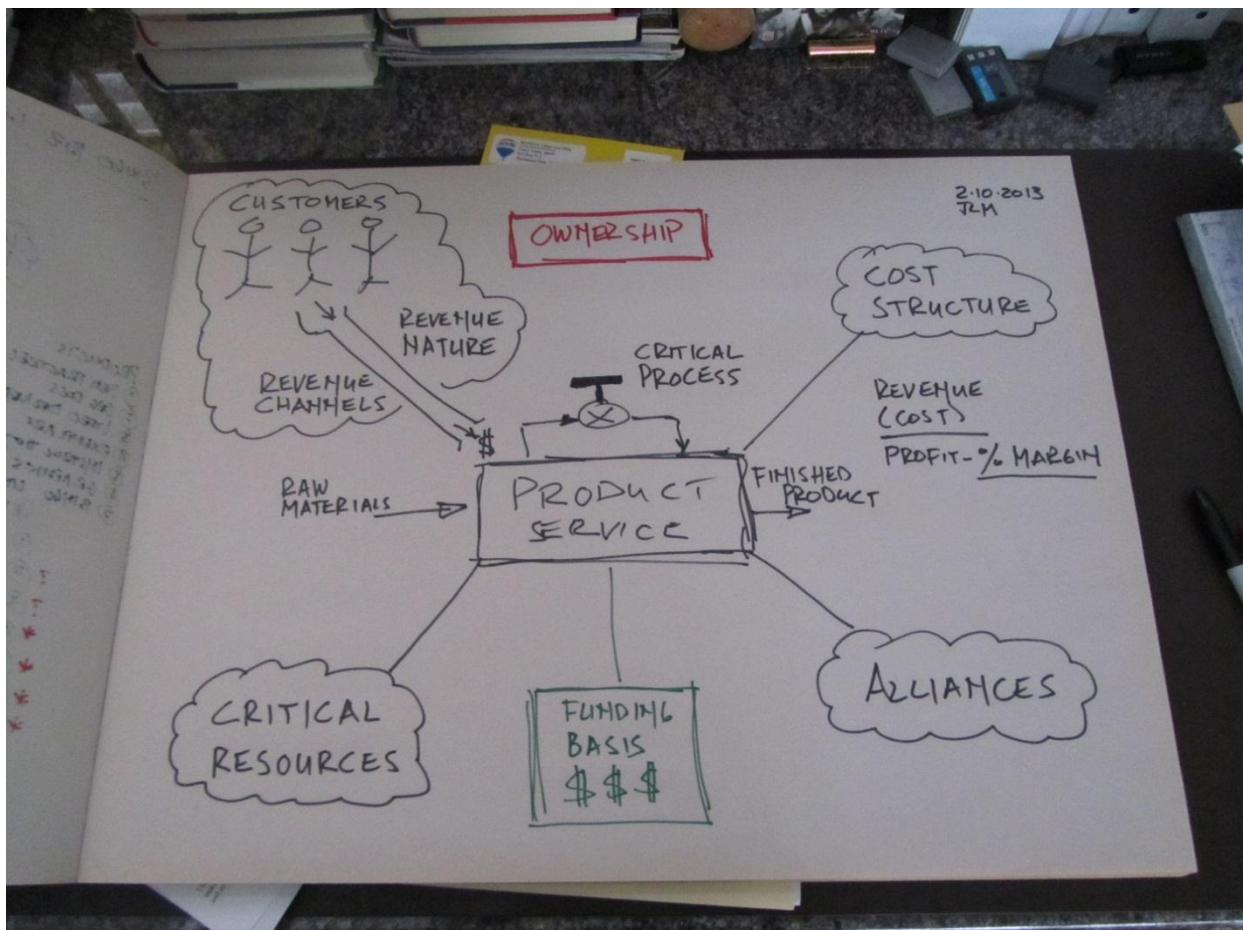 2.10.2013
JLM
CUSTOMERS
OWNERSHIP
COST
STRUCTURE
REVENUE
NATURE
REVENUE
CHANNELS
$
CRITICAL
PROCESS
REVENUE
(COST)
PROFIT - % MARGIN
RAW
MATERIALS
PRODUCT
SERVICE
FINISHED
PRODUCT
CRITICAL
RESOURCES
FUNDING
BASIS
$ $ $
ALLIANCES